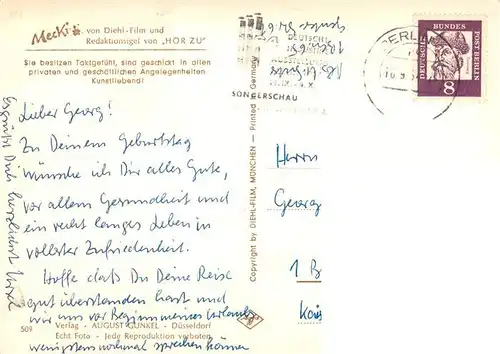 Mecki von Diehl-Film und
Redaktionsigel von "HÖR ZU"
Sie besitzen Taktgefühl, sind geschickt in allen
privaten und geschäftlichen Angelegenheiten
Kunstliebend!
Lieber Georg!
Zu Deinem Geburtstag
wünsche ich Dir alles Gute,
vor allem Gesundheit und
ein recht langes Leben in
vollster Zufriedenheit.
Hoffe daß Du Deine Reise
gut überstanden hast und
wir uns vor Beginn meines Urlaubes
wenigstens nochmal sprechen können
509
Verlag - AUGUST GUNKEL - Düsseldorf
Echt Foto - Jede Reproduktion verboten
Copyright by DIEHL-FILM, MÜNCHEN - Printed in Germany
DEUTSCHE
SONDERSCHAU
BERLIN
DEUTSCHE BUNDESPOST BERLIN
8
Herrn
Georg
1 B